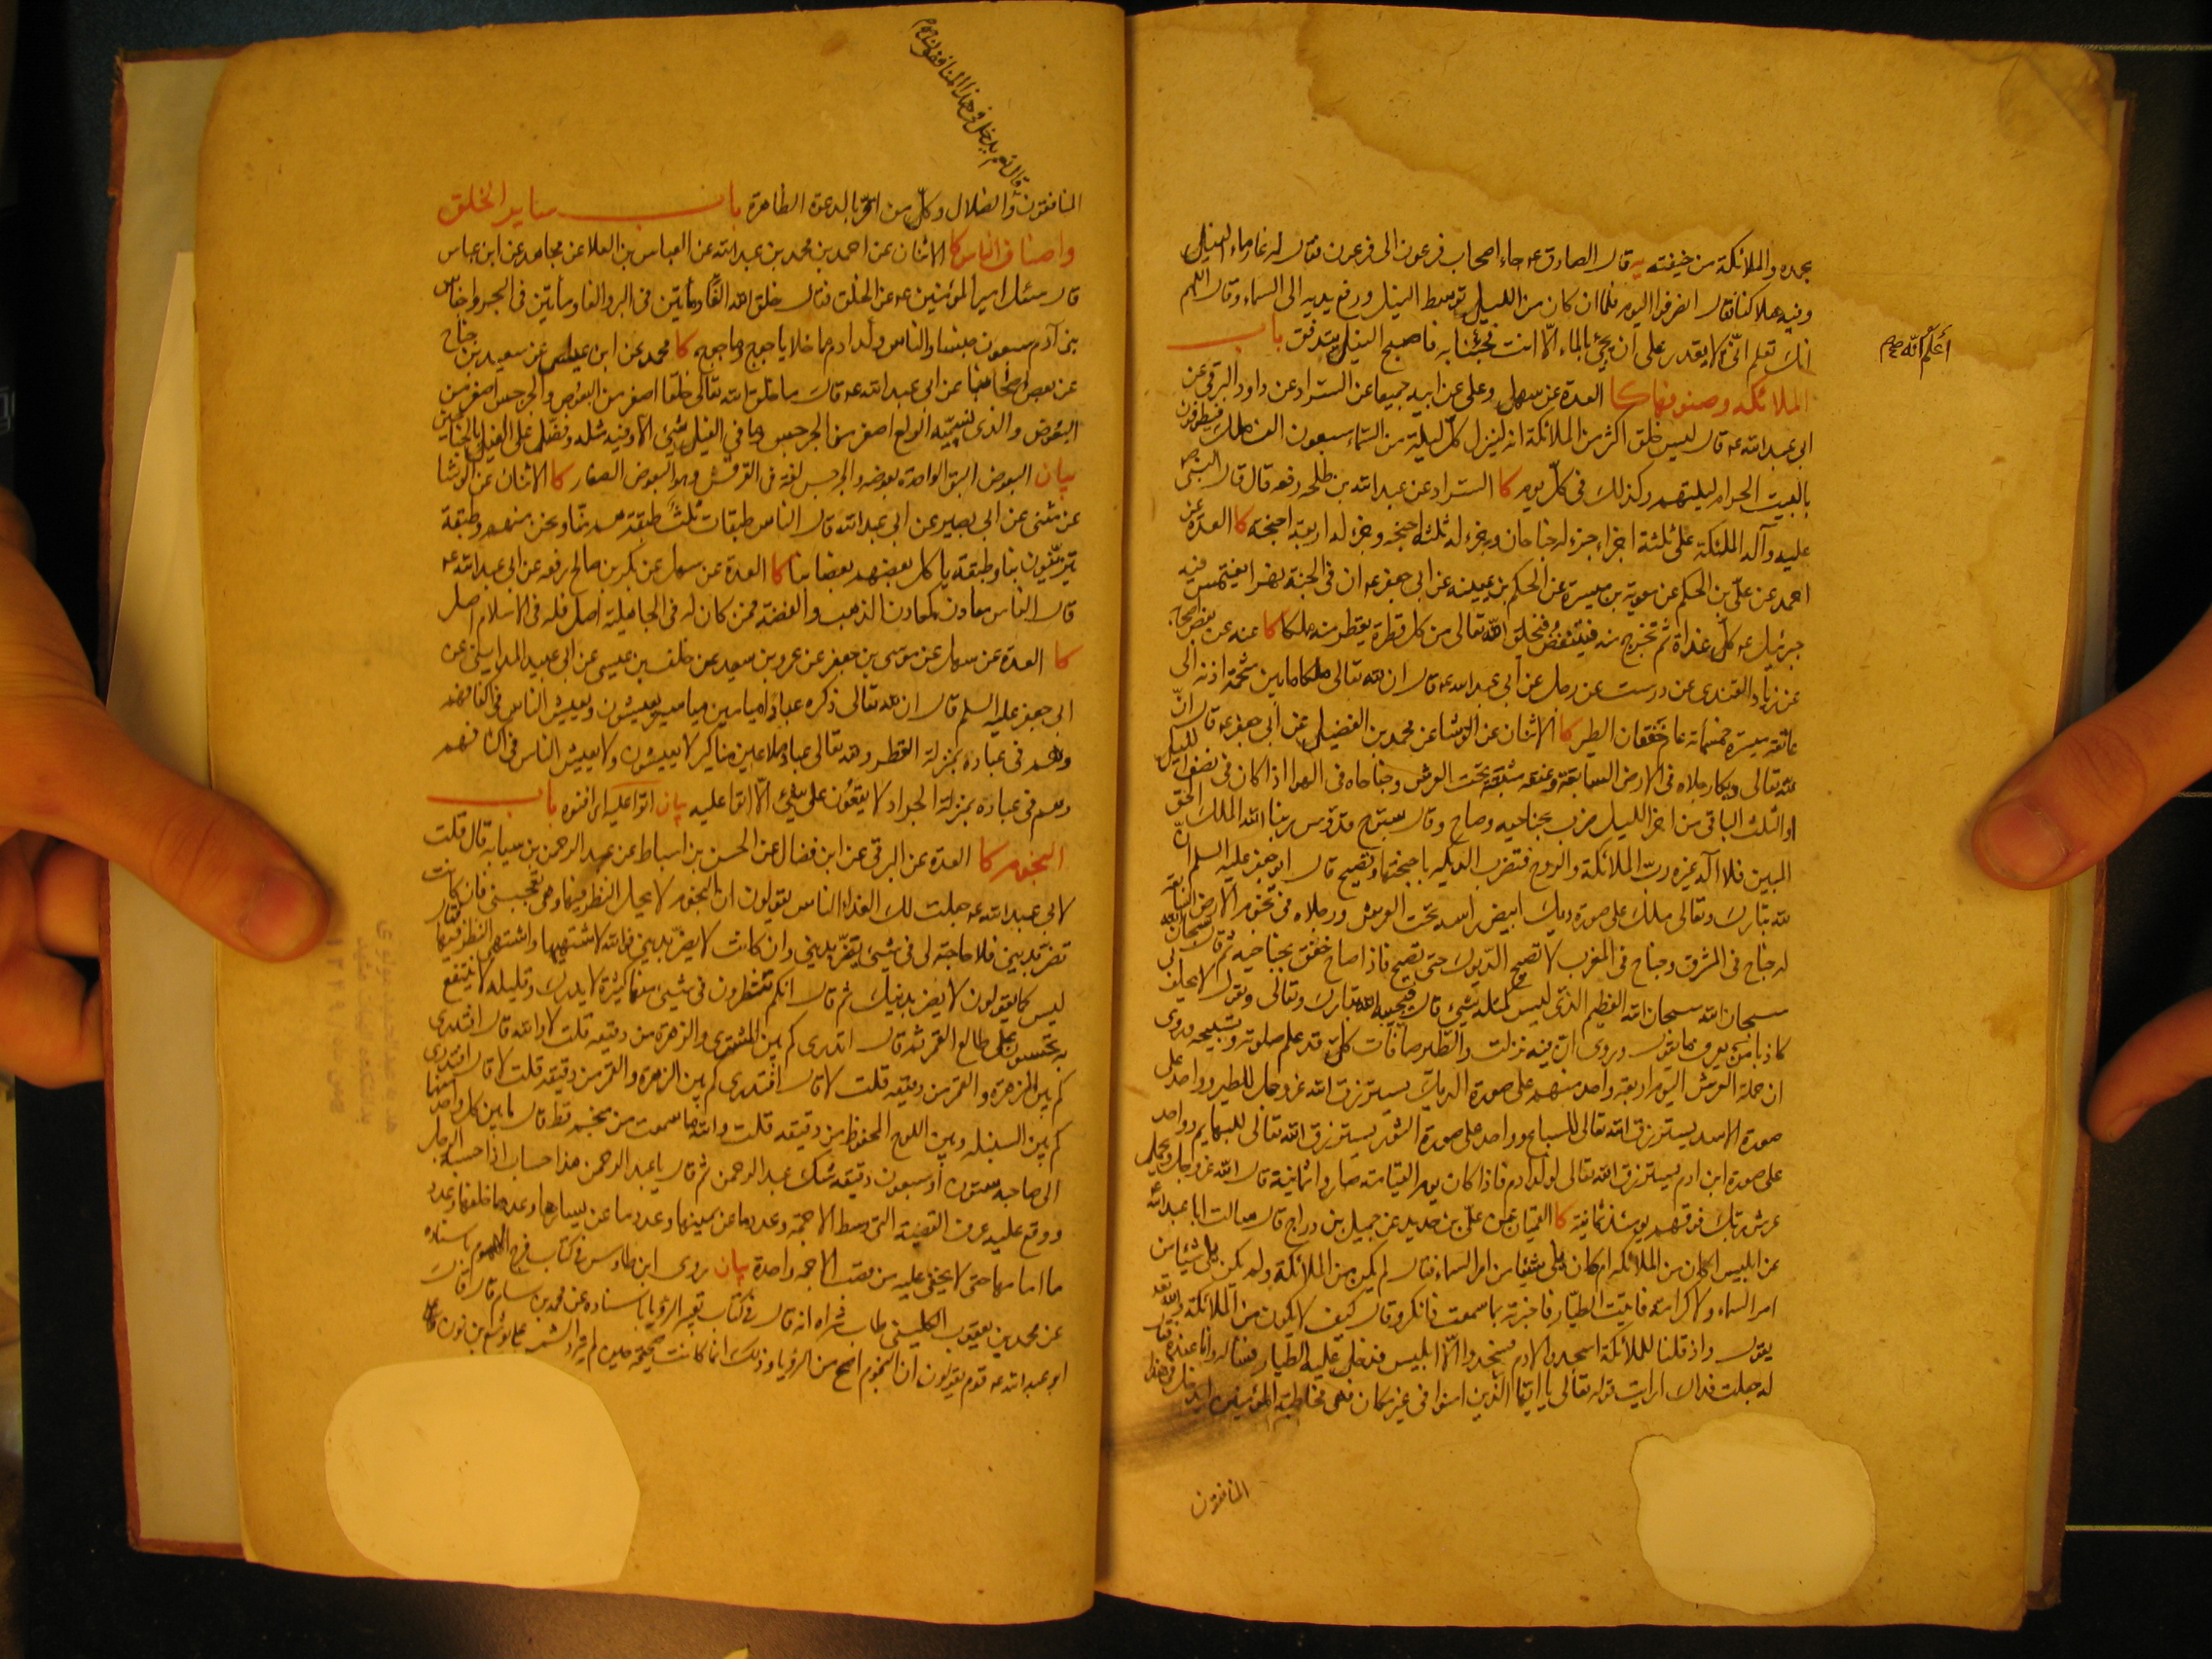 بحمده والملائكة من خيفته يه قال الصادق ع جاء اصحاب فرعون الى فرعون فقال له غار ماء النيل
وفيه هلاكنا فقال انصرفوا اليوم فلما ان كان من الليل توسط النيل ورفع يديه الى السماء وقال اللهم
انك تعلم انى لا يقدر على ان يجئ بالماء الا انت فجئنا به فاصبح النيل يتدفق باب
أعلم أنه صح
الملائكه وصنوفها كا العدة عن سهل وعلى عن ابيه جميعا عن السراد عن داود الرقى عن
ابى عبد الله ع قال ليس خلق اكثر من الملائكة انه لينزل كل ليلة من السماء سبعون الف ملك فيطوفون
بالبيت الحرام ليلتهم وكذلك فى كل يوم كا السراد عن عبد الله بن طلحه رفعه قال قال النبى ص
عليه وآله الملئكة على ثلثة اجزاء جزء له جناحان وجزء له ثلثه اجنحه وجزء له اربعة اجنحة كا العدة عن
احمد عن على بن الحكم عن معوية بن ميسرة عن الحكم بن عيينه عن ابى جعفر ع ان فى الجنة نهرا يغتمس فيه
جبرئيل ع كل غداة ثم تخرج منه فينتفض فيخلق الله تعالى من كل قطرة يقطر منه ملكا كا عنه عن بعض اصحابه
عن زياد القندى عن درست عن رجل عن ابى عبد الله ع قال ان لله تعالى ملكا ما بين شحمة اذنه الى
عاتقه مسيرة خمسمائة عام خفقان الطير كا الاثنان عن الوشا عن محمد بن الفضيل عن ابى جعفر ع قال ان
لله تعالى ديكا رجلاه فى الارض السابعة وعنقه مثبتة تحت العرش وجناحاه فى الهوا اذا كان فى نصف الليل
او الثلث الباقى من اخر الليل ضرب بجناحيه وصاح وقال سبوح قدوس ربنا الله الملك الحق
المبين فلا اله غيره رب الملائكة والروح فتضرب الديكه باجنحتها وتصيح قال ابو جعفر عليه السلم ان
لله تبارك وتعالى ملك على صورة ديك ابيض راسه تحت العرش ورجلاه فى تخوم الارض السابعة
له جناح فى المشرق وجناح فى المغرب لا تصيح الديوك حتى تصيح فاذا صاح خفق بجناحيه ثم قال سبحان الله
سبحان الله سبحان الله العظيم الذى ليس كمثله شئ قال فيجيبه الله تبارك وتعالى ويقول لا يحلف بى
كاذبا من يعرف ما تقول وروى ان فيه نزلت والطير صافات كل قد علم صلوته وتسبيحه وروى
ان حملة العرش اليوم اربعة واحد منهم على صورة الديك يسترزق الله عز وجل للطير وواحد على
صورة الاسد يسترزق الله تعالى للسباع وواحد على صورة الثور يسترزق الله تعالى للبهايم وواحد
على صورة ابن ادم يسترزق الله تعالى لولد ادم فاذا كان يوم القيامة صاروا ثمانية قال الله عز وجل ويحمل
عرش ربك فوقهم يومئذ ثمانية كا القميان عن على بن حديد عن جميل بن دراج قال سالت ابا عبد الله ع
عن ابليس اكان من الملائكه ام كان يلى شيئا من امر السماء فقال لم يكن من الملائكة ولم يكن يلى شيئا من
امر السماء ولا كرامة فاتيت الطيار فاخبرته بما سمعت فانكر وقال كيف لا يكون من الملائكة والله تعالى
يقول واذ قلنا للملائكة اسجدوا لادم فسجدوا الا ابليس فدخل عليه الطيار فساله وانا عنده فقال
له جعلت فداك ارايت قوله تعالى يا ايها الذين امنوا فى غير مكان فى مخاطبة المؤمنين ايدخل فى هذا
المنافقون
قال نعم يدخل فى هذا المنافقون صح
المنافقون والضلال وكل من اقر بالدعوة الظاهرة باب ساير الخلق
واصناف الناس كا الاثنان عن احمد بن محمد بن عبد الله عن العباس بن العلا عن مجاهد عن ابن عباس
قال سئل امير المؤمنين ع عن الخلق فقال خلق الله الفا ومأتين فى البر والفا ومأتين فى البحر واجناس
بنى آدم سبعون جنسا والناس ولد ادم ما خلا ياجوج وماجوج كا محمد عن ابن عيسى عن سعيد بن جناح
عن بعض اصحابنا عن ابى عبد الله ع قال ما خلق الله تعالى خلقا اصغر من البعوض والجرجس اصغر من
البعوض والذى نسميه الولع اصغر من الجرجس وما فى الفيل شئ الا وفيه مثله وفضل على الفيل بالجناحين
بيان البعوض البق الواحدة بعوضه والجرجس لغة فى القرقس وهو البعوض الصغار كا الاثنان عن الوشا
عن مثنى عن ابى بصير عن ابى عبد الله قال الناس طبقات ثلث طبقة هم منا ونحن منهم وطبقة
يتزينون بنا وطبقة ياكل بعضهم بعضا بنا كا العدة عن سهل عن بكر بن صالح رفعه عن ابى عبد الله ع
قال الناس معادن كمعادن الذهب والفضة فمن كان له فى الجاهلية اصل فله فى الاسلام اصل
كا العدة عن سهل عن موسى بن جعفر عن عمرو بن سعيد عن خلف بن عيسى عن ابى عبيد المدائنى عن
ابى جعفر عليه السلم قال ان لله تعالى ذكره عبادا ميامين مياسير يعيشون ويعيش الناس فى اكنافهم
وهم فى عباده بمنزلة القطر ولله تعالى عباد ملاعين مناكير لا يعيشون ولا يعيش الناس فى اكنافهم
وهم فى عباده بمنزلة الجراد لا يقعون على شئ الا اتوا عليه بيان اتوا عليه اى افنوه باب
النجوم كا العدة عن البرقى عن ابن فضال عن الحسن بن اسباط عن عبد الرحمن بن سيابه قال قلت
لابى عبد الله ع جعلت لك الفداء الناس يقولون ان النجوم لا يحل النظر فيها وهى تعجبنى فان كانت
تضر بدينى فلا حاجة لى فى شئ يضر بدينى وان كانت لا يضر بدينى فوالله لاشتهيها واشتهى النظر فيها فقال
ليس كما يقولون لا يضر بدينك ثم قال انكم تنظرون فى شئ منها كثيره لا يدرك وقليله لا ينتفع
به تحسبون على طالع القمر ثم قال اتدرى كم بين المشترى والزهرة من دقيقه قلت لا والله قال افتدرى
كم بين الزهرة والقمر من دقيقه قلت لا قال افتدرى كم بين الزهرة والقمر من دقيقه قلت لا قال افتدرى
كم بين السنبله وبين اللوح المحفوظ من دقيقه قلت والله ما سمعت من منجم قط قال ما بين كل واحد منهما
الى صاحبه ستون او سبعون دقيقه شك عبد الرحمن ثم قال يا عبد الرحمن هذا حساب اذا حسبه الرجل
ووقع عليه عرف القصبة التى وسط الاجمة وعدد ما عن يمينها وعدد ما عن يسارها وعدد ما خلفها وعدد
ما امامها حتى لا يخفى عليه من قصب الاجمه واحدة بيان روى ابن طاوس فى كتاب فرج المهموم باسناده
عن محمد بن يعقوب الكلينى طاب ثراه انه قال فى كتاب تعبير الرؤيا باسناده عن محمد بن سام قال قال
ابو عبد الله ع قوم يقولون ان النجوم اصح من الرؤيا وذلك انما كانت صحيحه حين لم يرد الشمس على يوشع بن نون